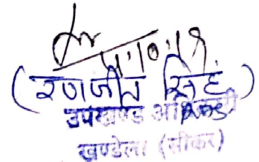 (रणजीत सिंह)
उपखण्ड अधिकारी
खण्डेला (सीकर)